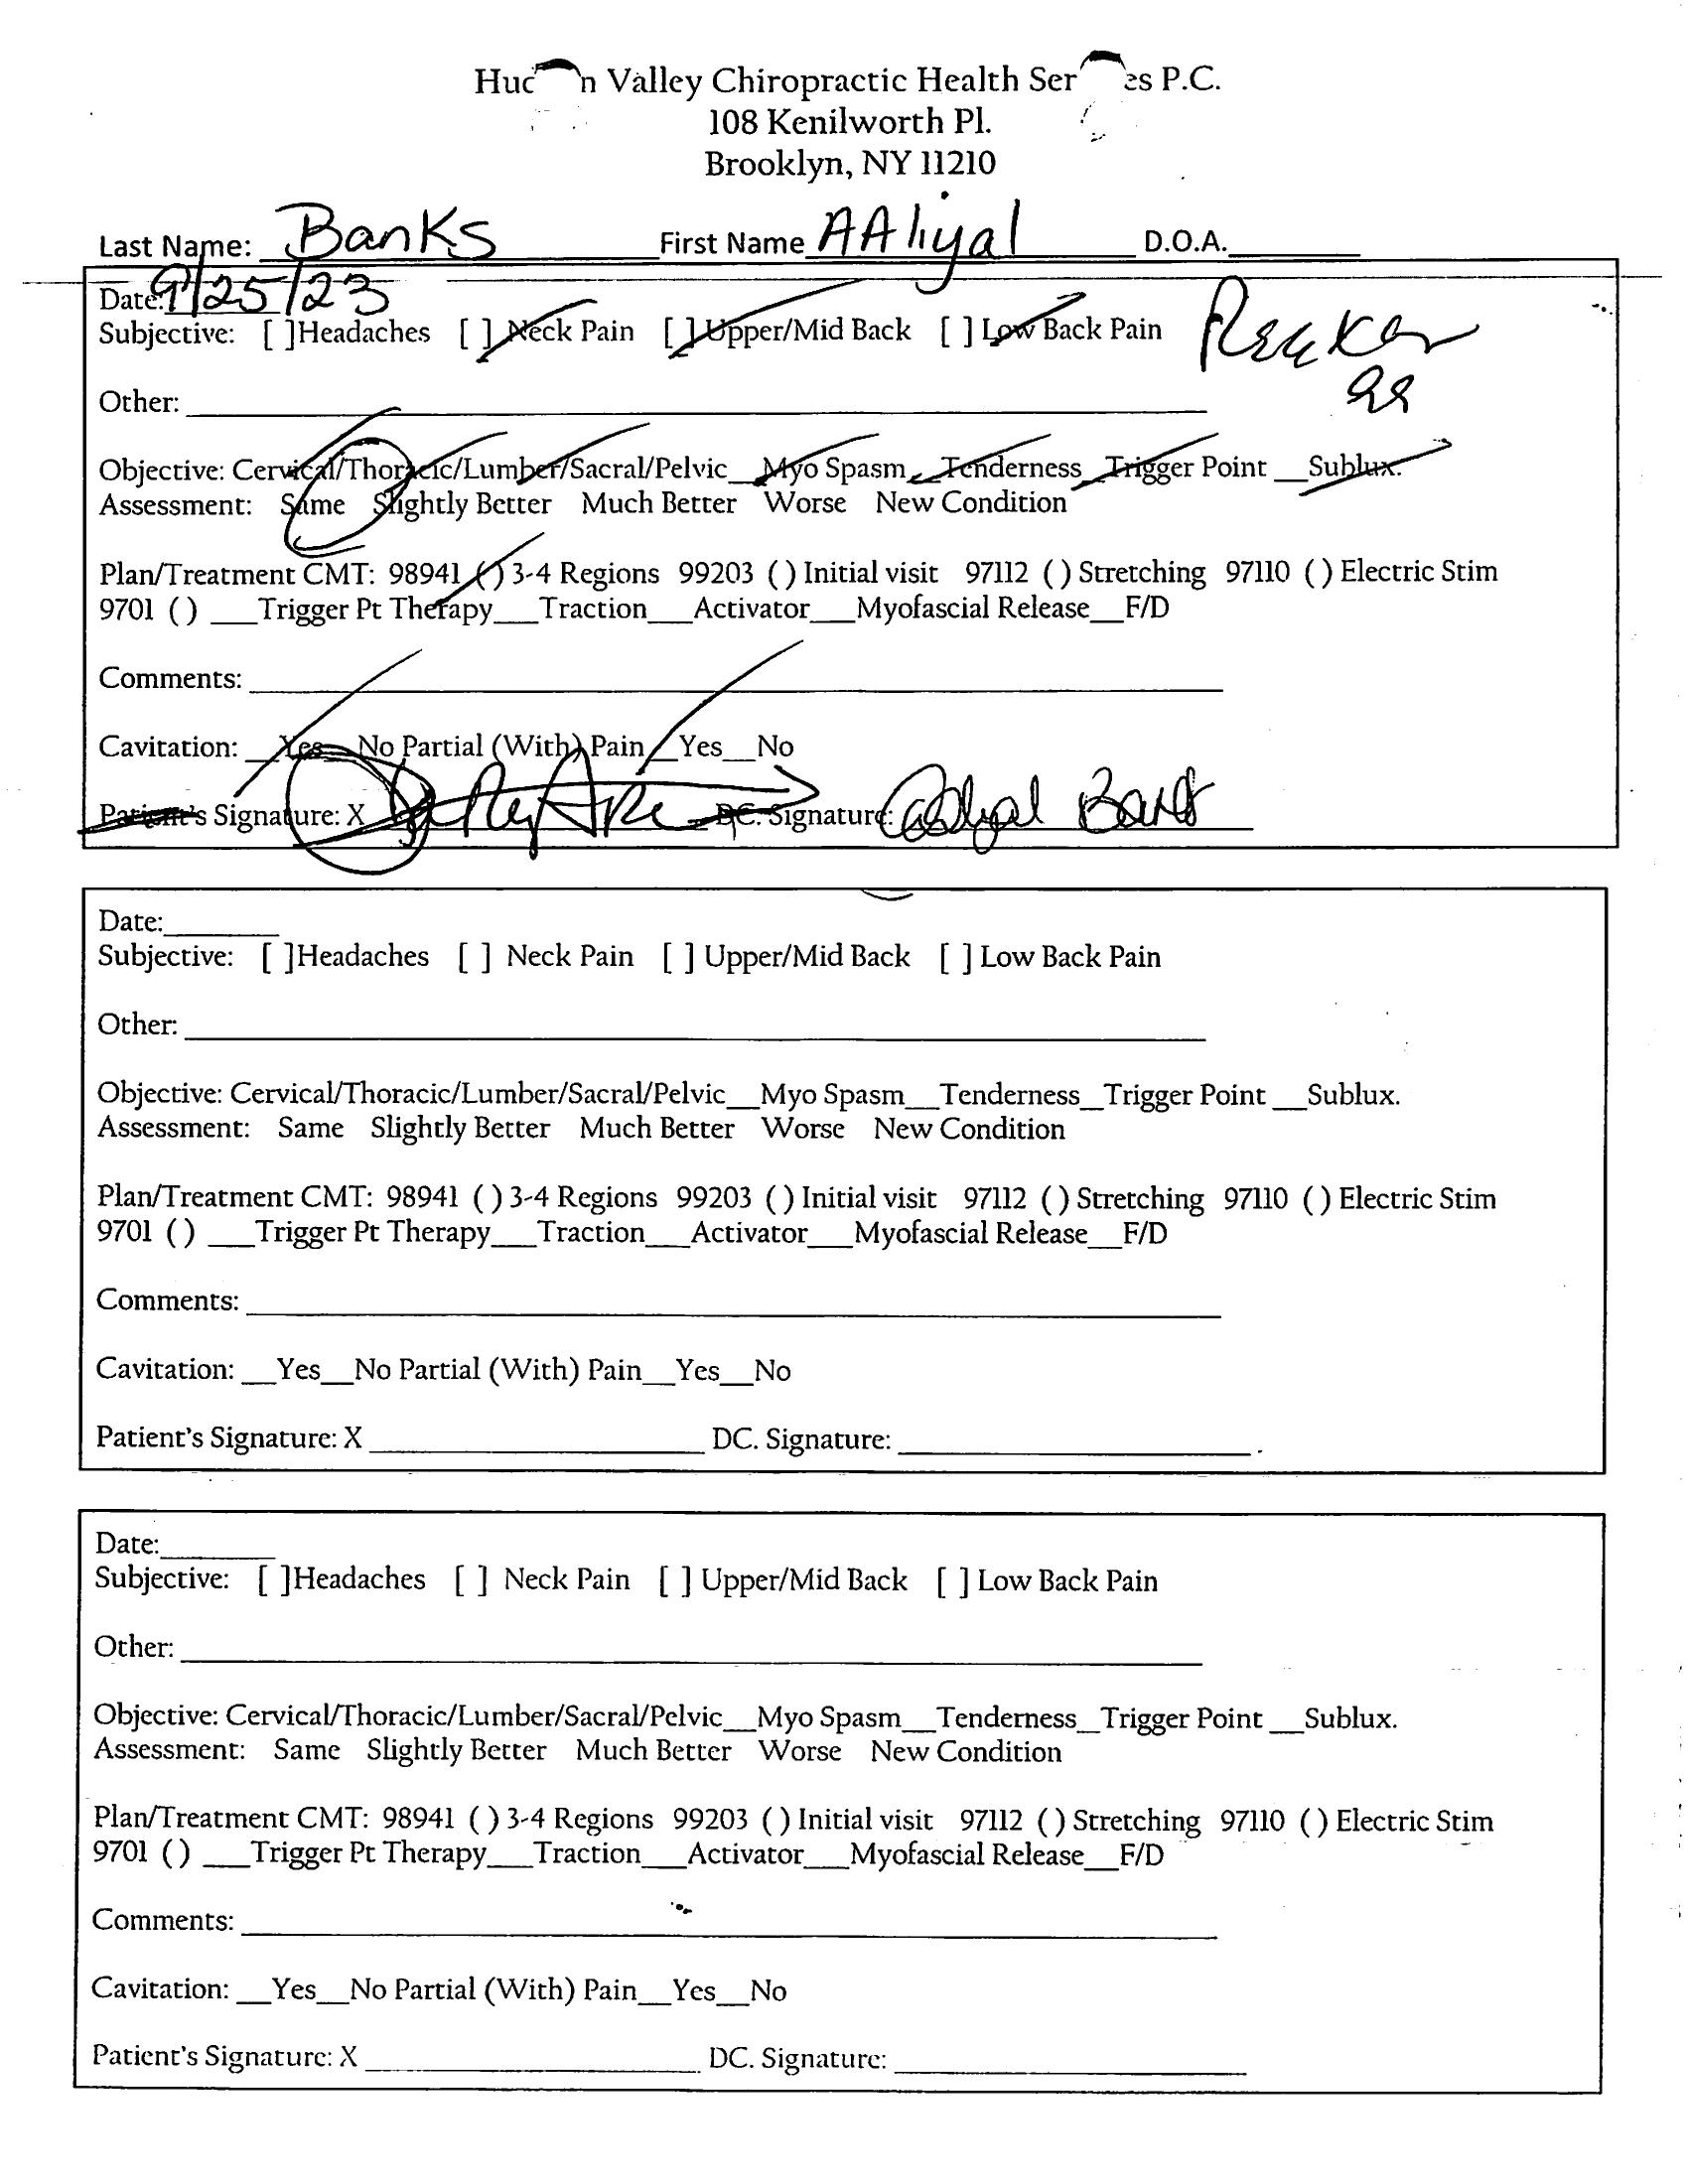 Huc n Valley Chiropractic Health Ser es P.C.
108 Kenilworth Pl.
Brooklyn, NY 11210
Last Name: Banks First Name AAliyal D.O.A.______
Date: 9/25/23
Subjective: [ ]Headaches [ ] Neck Pain [ ] Upper/Mid Back [ ] Low Back Pain
Other: ______
Objective: Cervical/Thoracic/Lumber/Sacral/Pelvic__Myo Spasm__Tenderness__Trigger Point __Sublux.
Assessment: Same Slightly Better Much Better Worse New Condition
Plan/Treatment CMT: 98941 ( ) 3-4 Regions 99203 ( ) Initial visit 97112 ( ) Stretching 97110 ( ) Electric Stim
9701 ( ) ___Trigger Pt Therapy___Traction___Activator___Myofascial Release__F/D
Comments: ______
Cavitation: __Yes__No Partial (With) Pain__Yes__No
Patient's Signature: X DC. Signature: Aaliyal Banks
Date:______
Subjective: [ ]Headaches [ ] Neck Pain [ ] Upper/Mid Back [ ] Low Back Pain
Other: ______
Objective: Cervical/Thoracic/Lumber/Sacral/Pelvic__Myo Spasm__Tenderness__Trigger Point __Sublux.
Assessment: Same Slightly Better Much Better Worse New Condition
Plan/Treatment CMT: 98941 ( ) 3-4 Regions 99203 ( ) Initial visit 97112 ( ) Stretching 97110 ( ) Electric Stim
9701 ( ) ___Trigger Pt Therapy___Traction___Activator___Myofascial Release__F/D
Comments: ______
Cavitation: __Yes__No Partial (With) Pain__Yes__No
Patient's Signature: X ______ DC. Signature: ______
Date:______
Subjective: [ ]Headaches [ ] Neck Pain [ ] Upper/Mid Back [ ] Low Back Pain
Other: ______
Objective: Cervical/Thoracic/Lumber/Sacral/Pelvic__Myo Spasm__Tenderness__Trigger Point __Sublux.
Assessment: Same Slightly Better Much Better Worse New Condition
Plan/Treatment CMT: 98941 ( ) 3-4 Regions 99203 ( ) Initial visit 97112 ( ) Stretching 97110 ( ) Electric Stim
9701 ( ) ___Trigger Pt Therapy___Traction___Activator___Myofascial Release__F/D
Comments: ______
Cavitation: __Yes__No Partial (With) Pain__Yes__No
Patient's Signature: X ______ DC. Signature: ______